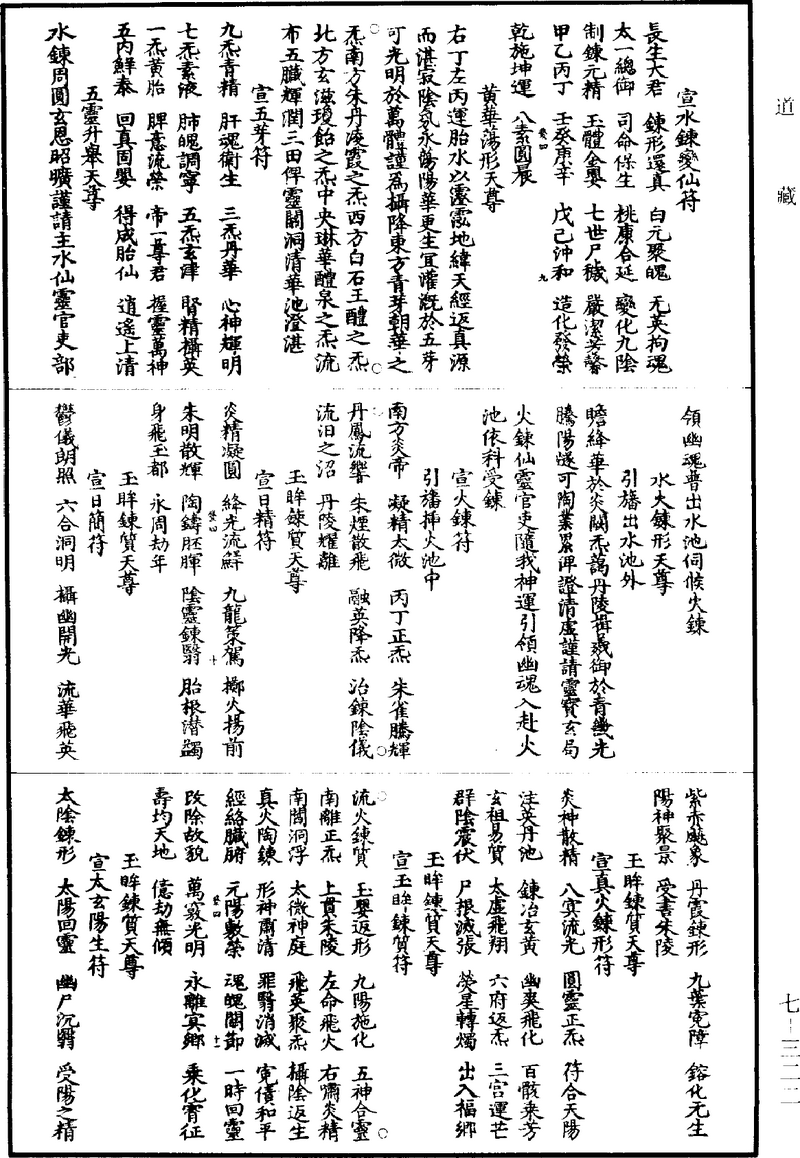 道藏
七—三二二
宣水鍊變仙符
長生大君 鍊形還真 白元聚魄 无英拘魂
太一總御 司命保生 桃康合延 變化九陰
制鍊元精 玉體金嬰 七世尸穢 嚴潔芳馨
甲乙丙丁 壬癸庚辛 戊己沖和 造化發榮
乾施坤運 八素圓晨
黃華蕩形天尊
右丁左丙運胎水以靈霐地緯天經返真源
而湛寂陰氛永蕩陽華更生宜灌溉於五芽
可光明於萬體謹為攝降東方青芽朝華之
炁南方朱丹凌霞之炁西方白石玉醴之炁
北方玄滋瓊飴之炁中央琳華醴泉之炁流
布五臟輝潤三田俾靈關洞清華池澄湛
宣五芽符
九炁青精 肝魂衛生 三炁丹華 心神輝明
七炁素液 肺魄調寧 五炁玄津 腎精攝英
一炁黃胎 脾意流榮 帝一尊君 握靈萬神
五內鮮泰 回真固嬰 得成胎仙 逍遙上清
五靈升舉天尊
水鍊周圓玄恩昭曠謹請主水仙靈官吏部
領幽魂普出水池伺候火鍊
水火鍊形天尊
引旛出水池外
瞻絳華於炎關炁藹丹陵 於青幾光
騰陽燧可陶業累俾證清虛謹請靈寶玄局
火鍊仙靈官吏隨我神運引領幽魂入赴火
池依科受鍊
引旛插火池中
宣火鍊符
南方炎帝 凝精太微 丙丁正炁 朱雀騰輝
丹鳳流響 朱煙散飛 融英降炁 治鍊陰儀
流汨之沼 丹陵耀離
玉眸鍊質天尊
宣日精符
炎精凝圓 絳光流鮮 九龍策駕 擲火揚前
朱明散輝 陶鑄胚腪 陰靈鍊翳 胎根潛蠲
身飛玉都 永周劫年
玉眸鍊質天尊
宣日簡符
鬱儀朗照 六合洞明 攝幽開光 流華飛英
紫赤飈象 丹霞鍊形 九葉冤障 鎔化无生
陽神聚景 受書朱陵
玉眸鍊質天尊
宣真火鍊形符
炎神散精 八宾流光 圓靈正炁 符合天陽
注英丹池 鍊冶玄黃 幽爽飛化 百骸乘芳
玄祖易質 太虛飛翔 六府返炁 三宮運芒
群陰震伏 尸根滅張 熒星轉燭 出入福鄉
玉眸鍊質天尊
宣玉眸鍊質符
流火鍊質 玉嬰返形 九陽施化 五神合靈
南離正炁 上貫朱陵 左命飛火 右嘯炎精
南閣洞浮 太微神庭 飛英聚炁 攝陰返生
真火陶鍊 形神肅清 罪翳消滅 冤債和平
經絡臟腑 元陽敷榮 魂魄關節 一時回靈
改除故貌 萬竅光明 永離冥鄉 乘化霄征
壽均天地 億劫無傾
玉眸鍊質天尊
宣太玄陽生符
太陰鍊形 太陽回靈 幽尸沉翳 受陽之精